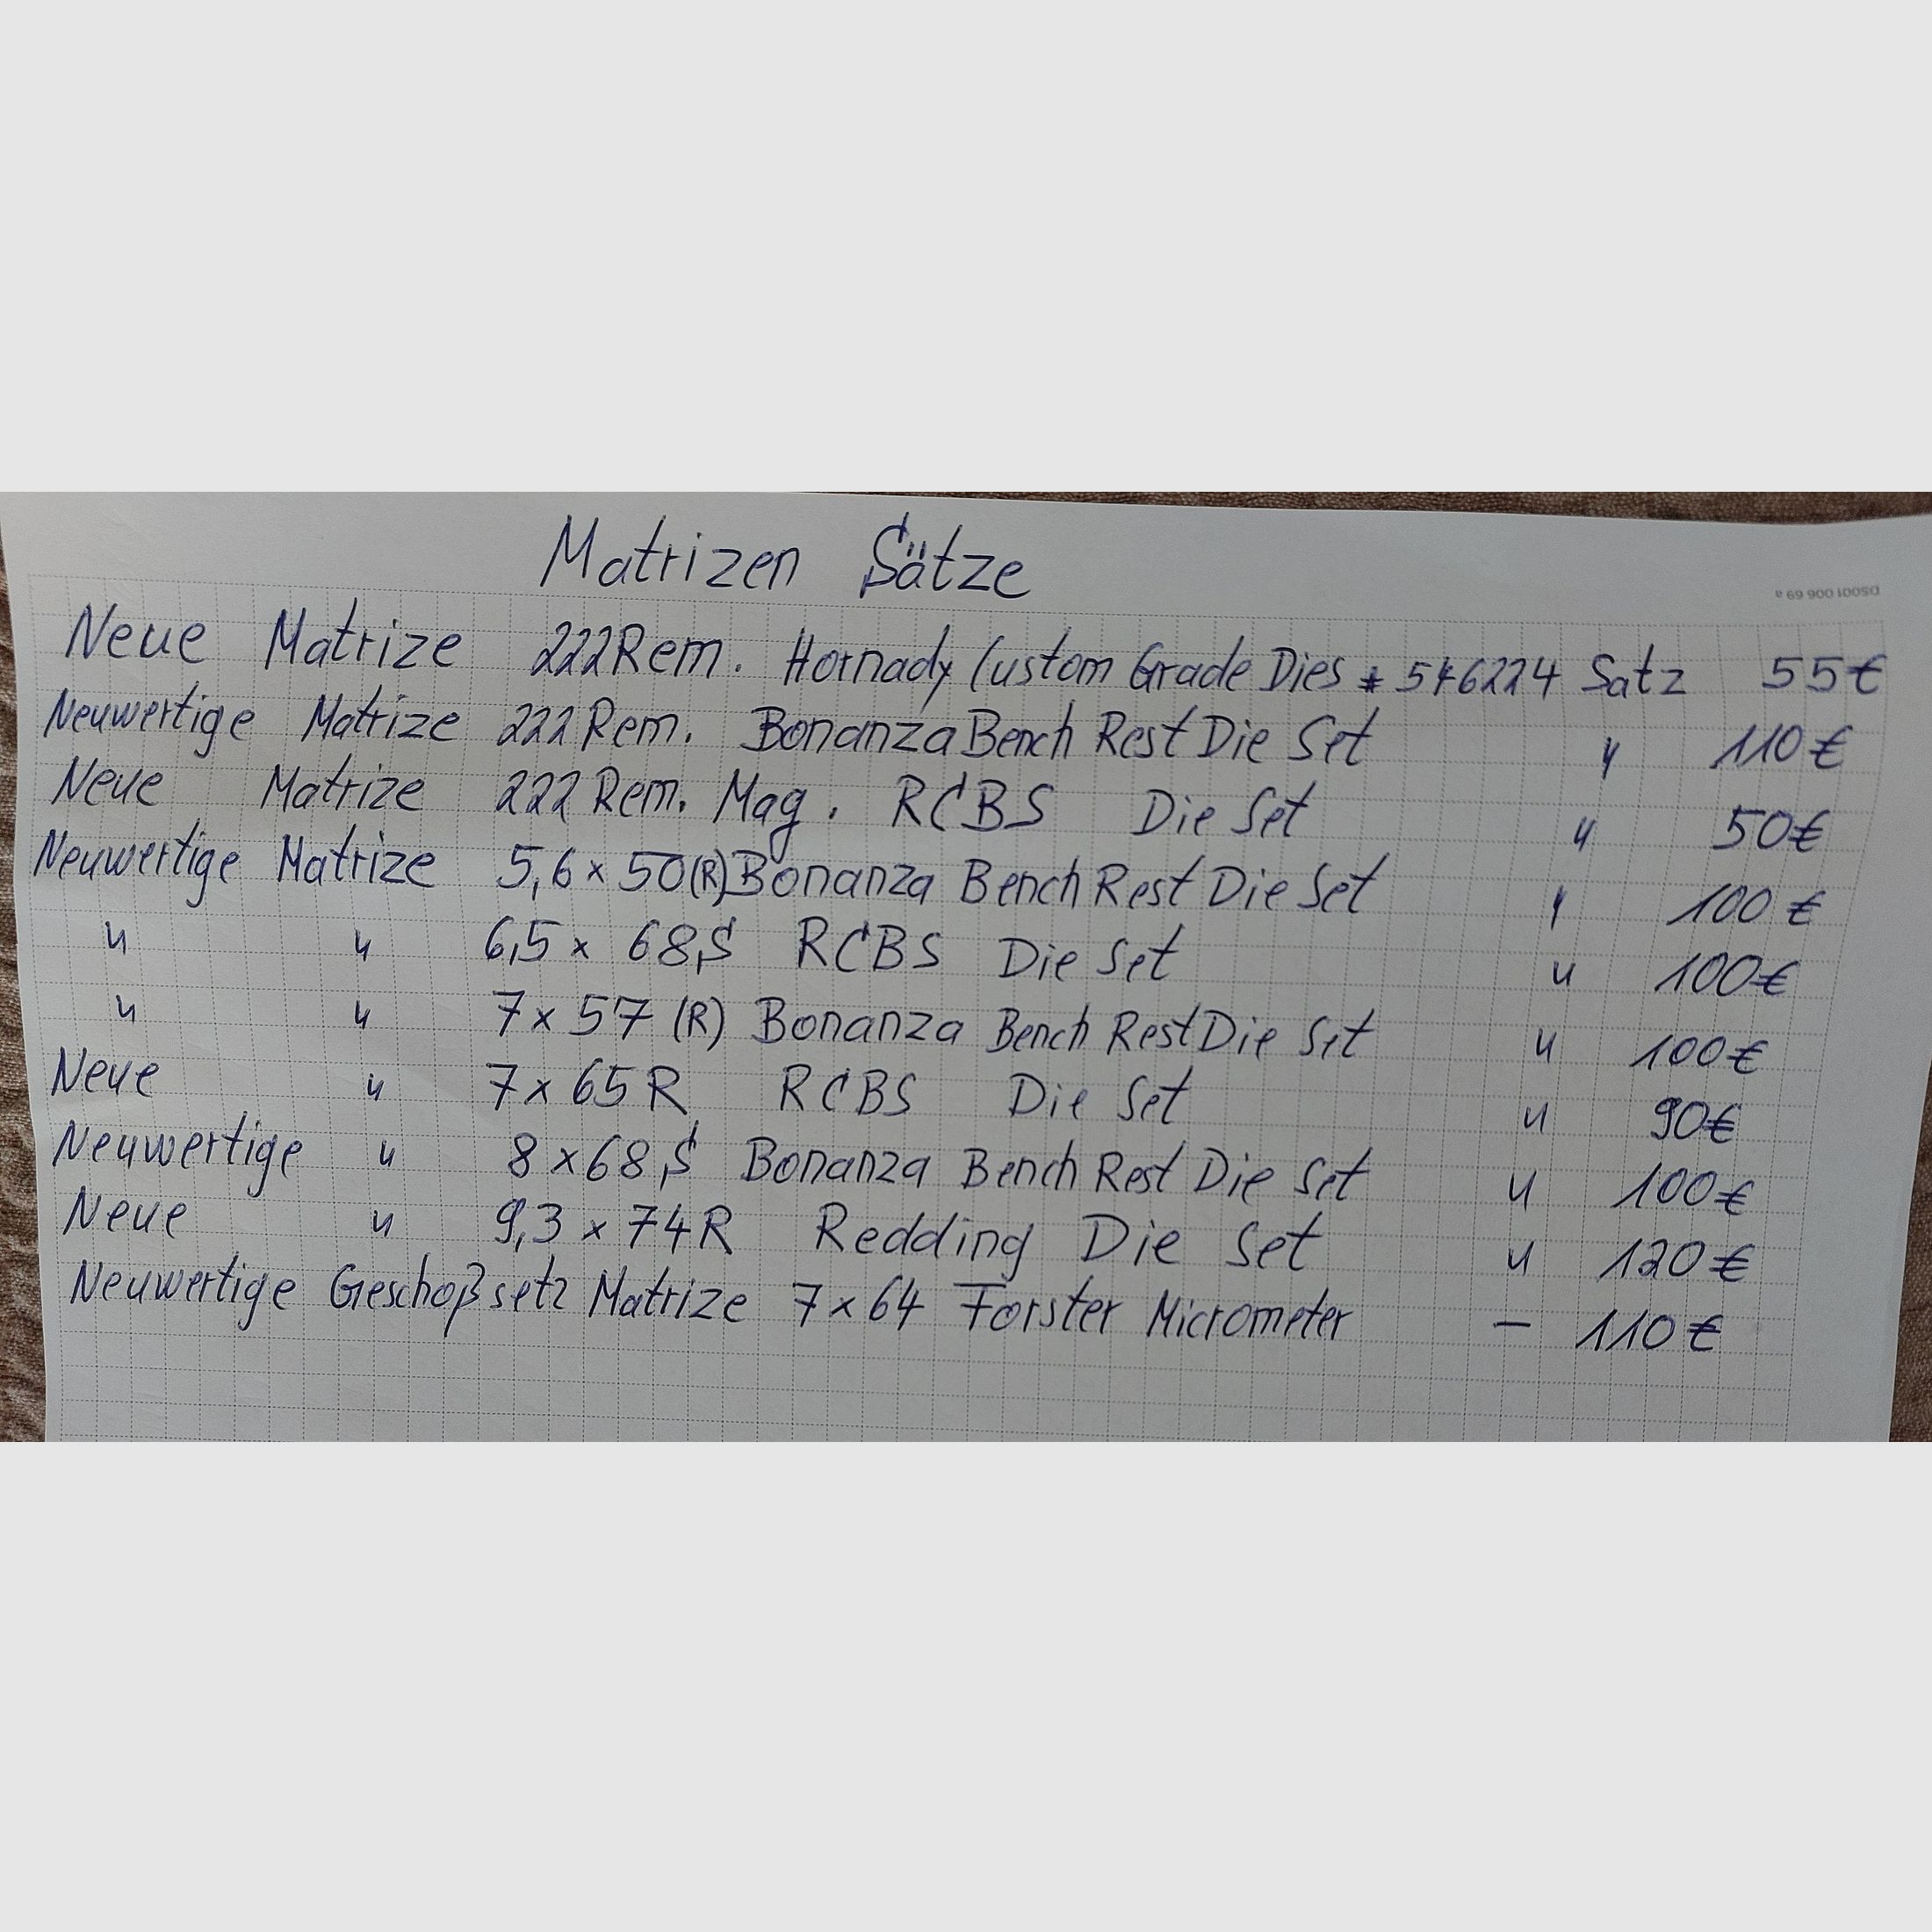 Matrizen Sätze
DS001 006 69 a
Neue Matrize 222 Rem. Hornady Custom Grade Dies # 546224 Satz 55€
Neuwertige Matrize 222 Rem. Bonanza Bench Rest Die Set " 110€
Neue Matrize 222 Rem. Mag. RCBS Die Set " 50€
Neuwertige Matrize 5,6 x 50(R) Bonanza Bench Rest Die Set " 100€
" " 6,5 x 68S RCBS Die Set " 100€
" " 7 x 57 (R) Bonanza Bench Rest Die Set " 100€
Neue " 7 x 65 R RCBS Die Set " 90€
Neuwertige " 8 x 68 S Bonanza Bench Rest Die Set " 100€
Neue " 9,3 x 74 R Redding Die Set " 120€
Neuwertige Geschoßsetz Matrize 7 x 64 Forster Micrometer – 110€